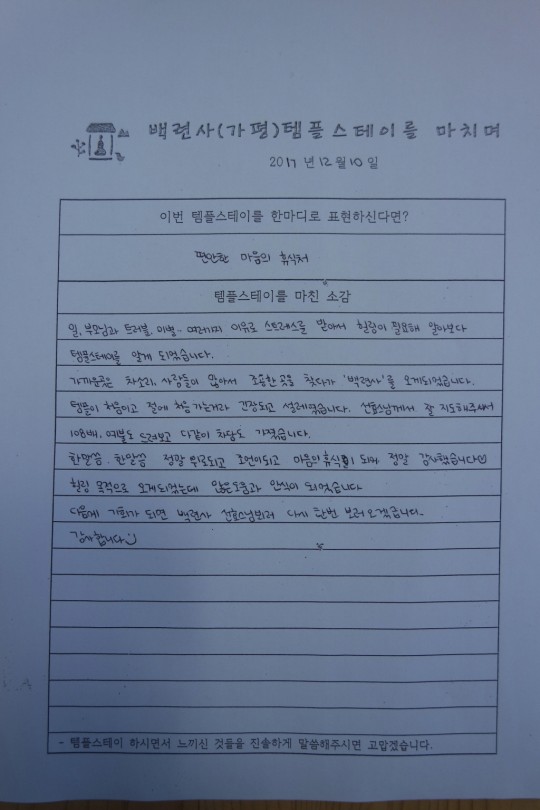 백련사(가평)템플스테이를 마치며
2017년 12월 10일
이번 템플스테이를 한마디로 표현하신다면?
편안한 마음의 휴식처
템플스테이를 마친 소감
일, 부모님과 트러블, 이별.. 여러가지 이유로 스트레스를 받아서 힐링이 필요해 알아보다
템플스테이를 알게 되었습니다.
가까운곳은 차소리, 사람들이 많아서 조용한 곳을 찾다가 '백련사'를 오게되었습니다.
템플이 처음이고 절에 처음 가는거라 긴장되고 설레였습니다. 선효스님께서 잘 지도해주셔서
108배, 예불도 드려보고 다같이 차담도 가졌습니다.
한말씀 한말씀 정말 위로되고 조언이되고 마음의 휴식이 되어 정말 감사했습니다
힐링 목적으로 오게되었는데 많은도움과 안식이 되었습니다
다음에 기회가 되면 백련사 선효스님뵈러 다시 한번 보러오겠습니다..
감사합니다
- 템플스테이 하시면서 느끼신 것들을 진솔하게 말씀해주시면 고맙겠습니다.